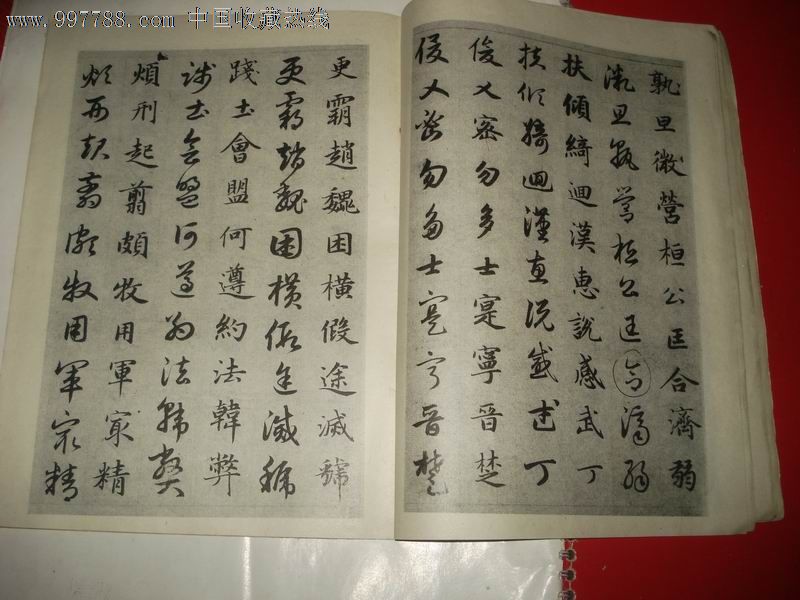 www.997788.com 中国收藏热线
孰旦微營桓公匡合濟弱
微旦孰營桓公匡合濟弱
扶傾綺迴漢惠說感武丁
扶傾綺迴漢惠說感武丁
俊乂密勿多士寔寧晉楚
俊乂密勿多士寔寧晉楚
更霸趙魏困橫假途滅虢
更霸趙魏困橫假途滅虢
踐土會盟何遵約法韓弊
踐土會盟何遵約法韓弊
煩刑起翦頗牧用軍冣精
煩刑起翦頗牧用軍冣精